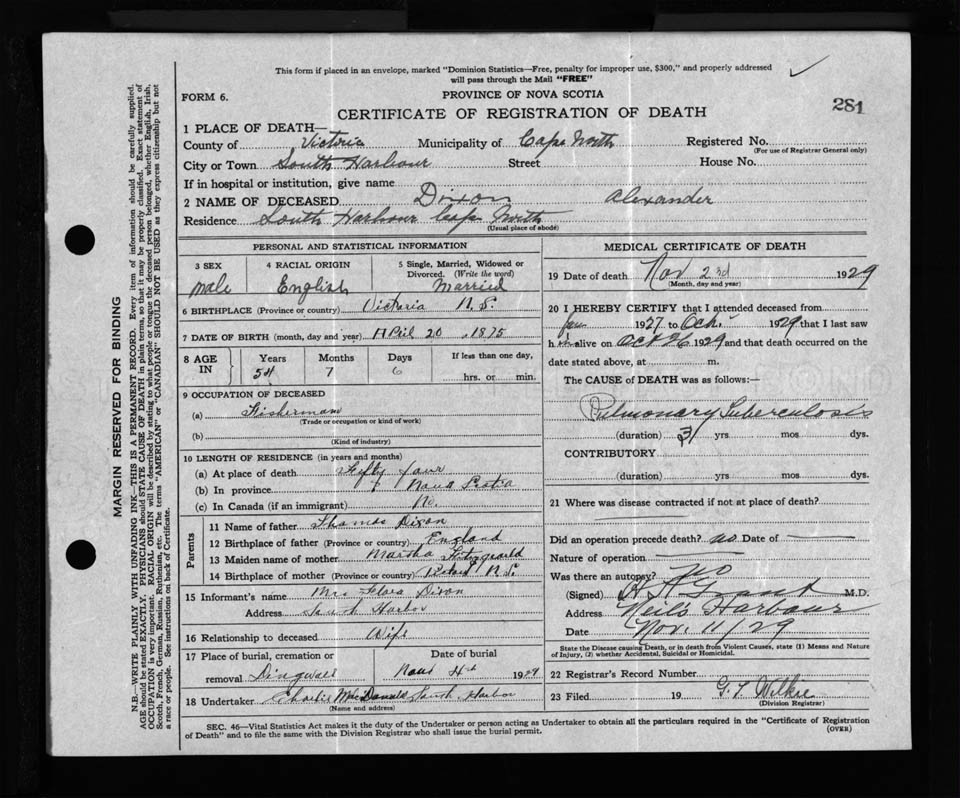 This form if placed in an envelope, marked "Dominion Statistics—Free, penalty for improper use, $300," and properly addressed
will pass through the Mail "FREE"
FORM 6.
PROVINCE OF NOVA SCOTIA
CERTIFICATE OF REGISTRATION OF DEATH
281
1 PLACE OF DEATH—
County of Victoria Municipality of Cape North Registered No.
(For use of Registrar General only)
City or Town South Harbour Street House No.
If in hospital or institution, give name
2 NAME OF DECEASED Dixon Alexander
Residence South Harbour Cape North
(Usual place of abode)
PERSONAL AND STATISTICAL INFORMATION
3 SEX 4 RACIAL ORIGIN 5 Single, Married, Widowed or Divorced. (Write the word)
male English Married
6 BIRTHPLACE (Province or country) Victoria N.S.
7 DATE OF BIRTH (month, day and year) April 20, 1875
8 AGE IN Years Months Days If less than one day,
54 7 6 hrs. or min.
9 OCCUPATION OF DECEASED
(a) Fisherman
(Trade or occupation or kind of work)
(b)
(Kind of industry)
10 LENGTH OF RESIDENCE (in years and months)
(a) At place of death Fifty four
(b) In province Nova Scotia
(c) In Canada (if an immigrant) No.
Parents
11 Name of father Thomas Dixon
12 Birthplace of father (Province or country) England
13 Maiden name of mother Martha
14 Birthplace of mother (Province or country) N.S.
15 Informant's name Mrs Flora Dixon
Address South Harbor
16 Relationship to deceased Wife
17 Place of burial, cremation or Date of burial
removal Dingwall 4th 1929
18 Undertaker Charlie MacDonald South Harbor
(Name and address)
MEDICAL CERTIFICATE OF DEATH
19 Date of death Nov 2nd 1929
(Month, day and year)
20 I HEREBY CERTIFY that I attended deceased from
Jan 1927 to Oct. 1929 that I last saw
him alive on Oct 26 1929 and that death occurred on the
date stated above, at m.
The CAUSE of DEATH was as follows:—
Pulmonary Tuberculosis
(duration) 3 yrs mos. dys.
CONTRIBUTORY
(duration) yrs. mos. dys.
21 Where was disease contracted if not at place of death?
Did an operation precede death? No Date of
Nature of operation
Was there an autopsy? No
(Signed) Grant M.D.
Address Neil's Harbour
Date Nov. 11/29
State the Disease causing Death, or in death from Violent Causes, state (1) Means and Nature of Injury, (2) whether Accidental, Suicidal or Homicidal.
22 Registrar's Record Number
23 Filed 19 G. T. Wilkie
(Division Registrar)
SEC. 46—Vital Statistics Act makes it the duty of the Undertaker or person acting as Undertaker to obtain all the particulars required in the "Certificate of Registration
of Death" and to file the same with the Division Registrar who shall issue the burial permit.
(OVER)
MARGIN RESERVED FOR BINDING
N.B.—WRITE PLAINLY WITH UNFADING INK—THIS IS A PERMANENT RECORD. Every item of information should be carefully supplied.
AGE should be stated EXACTLY. PHYSICIANS should STATE CAUSE OF DEATH in plain terms, so that it may be properly classified. Exact statement of
OCCUPATION is very important. RACIAL ORIGIN will be described by stating to what people or tongue the deceased person belonged, whether English, Irish,
Scotch, French, German, Russian, Ruthenian, etc. The terms "AMERICAN" or "CANADIAN" SHOULD NOT BE USED as they express citizenship but not
a race or people. See instructions on back of Certificate.